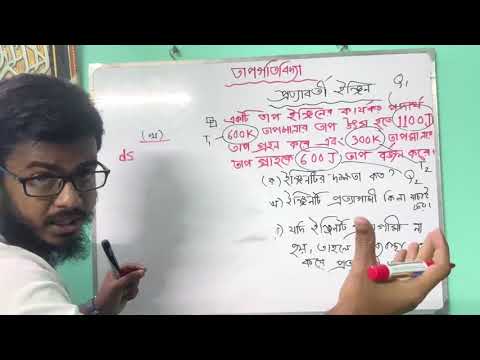 তাপগতিবিদ্যা
প্রত্যাবর্তী ইঞ্জিন Q₁
একটি তাপ ইঞ্জিনের কার্যকর পদার্থ
T₁ 600K তাপমাত্রার তাপ উৎস হতে 1100J
তাপ গ্রহন করে এবং 300K তাপমাত্রার
তাপ গ্রাহকে 600J তাপ বর্জন করে। T₂
(ক) ইঞ্জিনটির দক্ষতা কত? Q₂
খ) ইঞ্জিনটি প্রত্যাগামী কিনা যাচাই
যদি ইঞ্জিনটি না
হয়, তাহলে
করলে
(খ)
ds